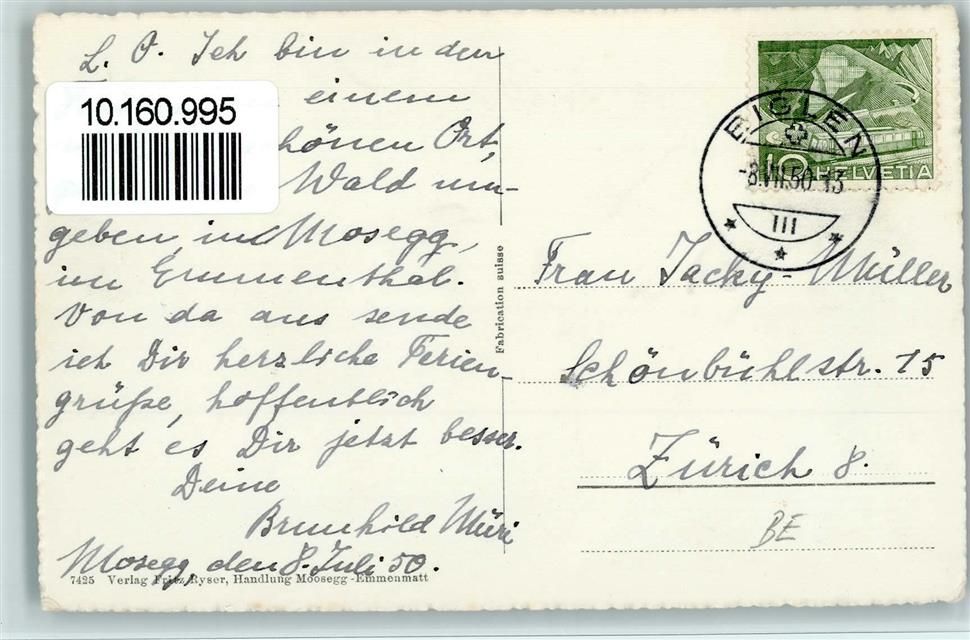 L. O. Ich bin in den
einem
hönen Ort,
Wald um-
geben, in Mosegg,
im Emmenthal.
Von da aus sende
ich Dir herzliche Ferien-
grüße, hoffentlich
geht es Dir jetzt besser.
Deine
Brunhold Müri
Mosegg, den 8. Juli 50.
7425 Verlag Fritz Ryser, Handlung Moosegg-Emmenmatt
10.160.995
Fabrication suisse
10 HELVETIA
BIGLEN
-8.VII.50-13
III
Frau Jacky-Müller
Schönbühlstr. 15
Zürich 8.
BE